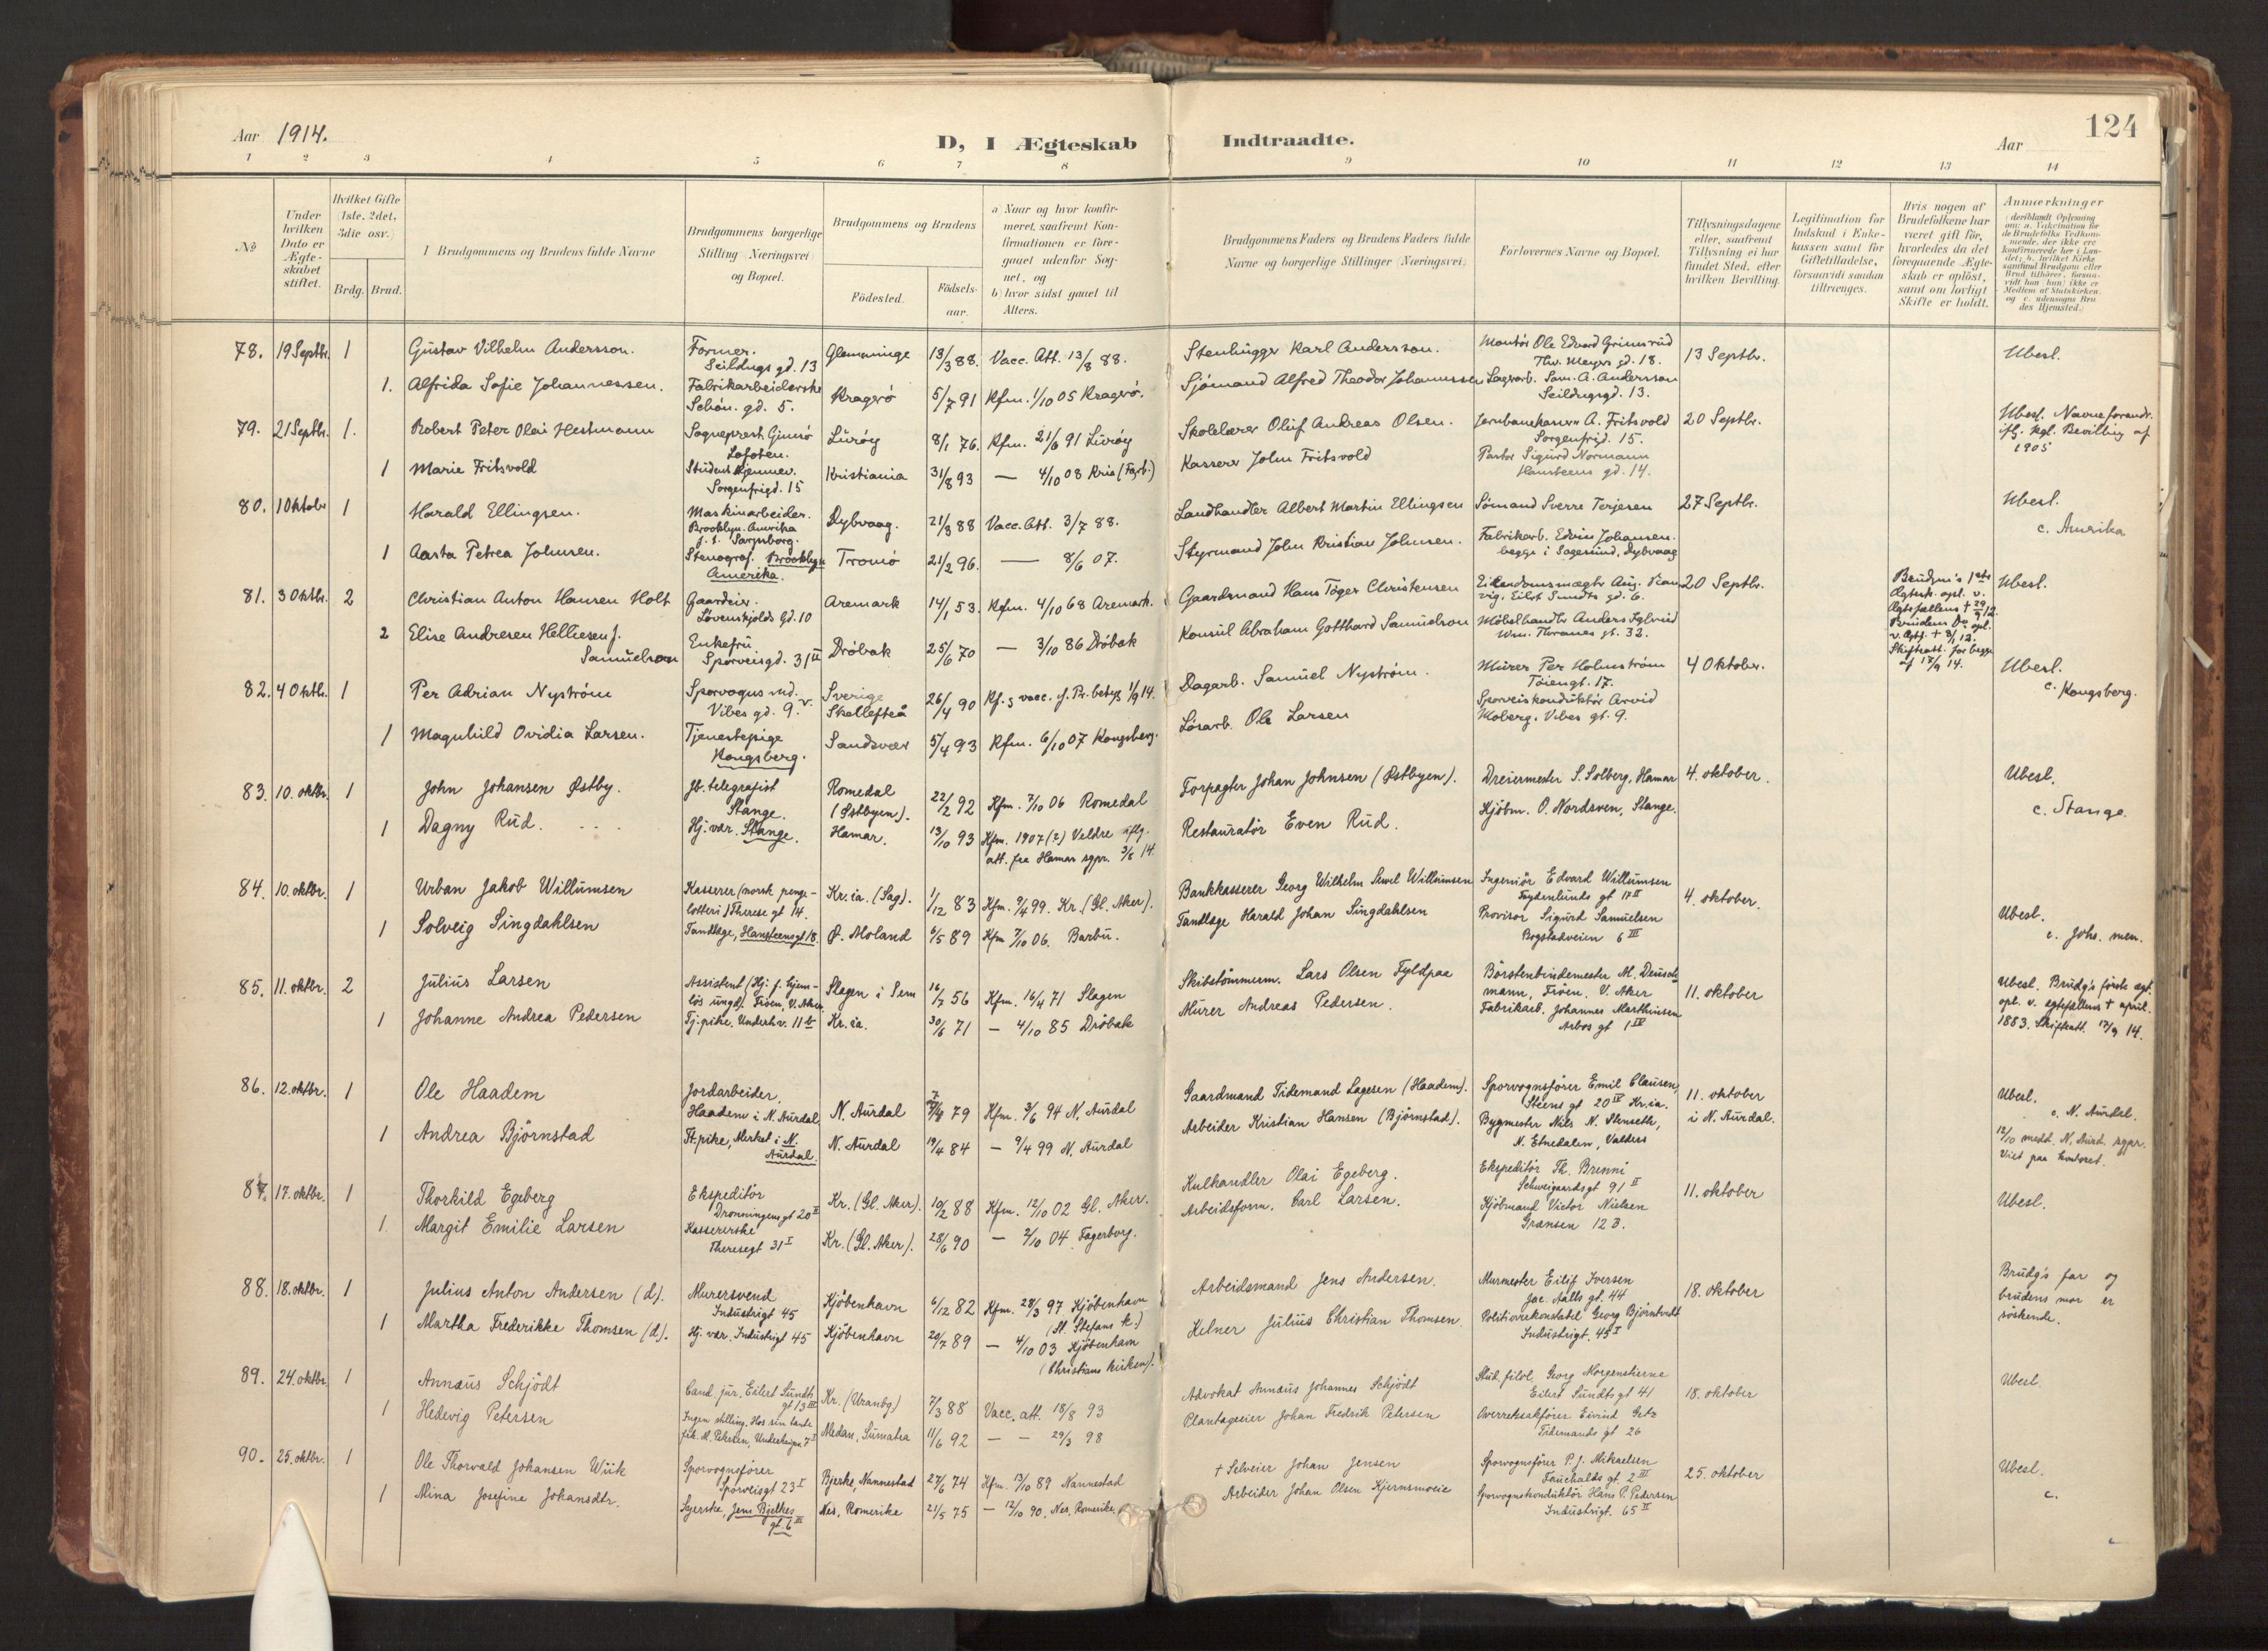 Aar 1914.
D, I Ægteskab Indtraadte.
Aar
124
1 2 3 4 5 6 7 8 9 10 11 12 13 14
No
Under hvilken Dato er Ægteskabet stiftet.
Hvilket Gifte (1ste, 2det, 3die osv.)
Brdg. Brud.
I Brudgommens og Brudens fulde Navne
Brudgommens borgerlige Stilling (Næringsvei) og Bopæl.
Brudgommens og Brudens
Födested.
Födselsaar.
a) Naar og hvor konfirmeret, saafremt Konfirmationen er foregaaet udenfor Sognet, og
b) hvor sidst gaaet til Alters.
Brudgommens Faders og Brudens Faders fulde Navne og borgerlige Stillinger (Næringsvei)
Forlovernes Navne og Bopæl.
Tillysningsdagene eller, saafremt Tillysning ei har fundet Sted, efter hvilken Bevilling.
Legitimation for Indskud i Enkekassen samt for Giftetilladelse, forsaavidt saadan tiltrænges.
Hvis nogen af Brudefolkene har været gift før, hvorledes da det foregaaende Ægteskab er opløst, samt om lovligt Skifte er holdt.
Anmærkninger
78. 19 Septbr. 1 Gustav Vilhelm Andersson. Former. Seildugs gd. 13 Glemminge 13/3 88. Vacc. Att. 13/8 88. Stenhugger Karl Andersson. Montør Ole Edvard Grimsrud Thv. Meyers gd. 18. 13 Septbr. Ubesl.
1. Alfrida Sofie Johannessen. Fabrikarbeiderske Schön. gd. 5. Kragerø 5/7 91 Kfm. 1/10 05 Kragerø. Sjømand Alfred Theodor Johannessen Lagerarb. Sam. A. Andersson Seildugsgd. 13.
79. 21 Septbr. 1. Robert Peter Olai Hestmann Sogneprest Gimsø Lofoten. Lurøy 8/1 76. Kfm. 21/6 91 Lurøy Skolelærer Oluf Andreas Olsen. Jernbanekasserer A. Fritsvold Sorgenfrigd. 15. 20 Septbr. Ubesl. Navneforandr. iflg. kgl. Bevilling af 1905
1 Marie Fritsvold Student Hjemmev. Sorgenfrigd. 15 Kristiania 31/8 93 — 4/10 08 Kris (Fagb.) Kasserer John Fritsvold Pastor Sigurd Normann Hansteens gd. 14.
80. 1 Oktober 1 Harald Ellingsen. Maskinarbeider. Brooklyn. Amerika f. t. Sarpsborg. Dybvaag. 21/3 88 Vacc. Att. 3/7 88. Landhandler Albert Martin Ellingsen Sømand Sverre Terjesen 27 Septbr. Ubesl. c. Amerika
1 Aasta Petrea Johnsen. Stenograf. Brooklyn Amerika. Tromø 21/2 96. — 8/6 07. Styrmand John Kristian Johnsen. Fabrikarb. Edvin Johansen. begge i Sagesund, Dybvaag
81. 3 Oktbr. 2 Christian Anton Hansen Holt Gaardeier. Løvenskjolds Gd. 10 Aremark 14/1 53. Kfm. 4/10 68 Aremark. Gaardmand Hans Töger Christensen Eiendomsmægler Aug. Ramvig. Eilert Sundts gd. 6. 20 Septbr. Ubesl.
2 Elise Andresen Helliesen f. Samuelson Enkefru Sporveisgd. 31 II Drøbak 25/6 70 — 3/10 86 Drøbak Konsul Abraham Gotthard Samuelson Møbelhandler Anders Wm. Thranes gt. 32.
Brudgm's 1ste Ægtesk. opl. v. Ægtefællens † 29/9 12. Brudens Do opl. v. Ægtf. † 3/1 12. Skifteatt. for begge af 17/9 14.
82. 4 Oktbr. 1 Per Adrian Nyström Sporvogns md. Vibes gd. 9. v. Sverige Skellefteå 26/4 90 Kf. & vacc. f. Pr. betyg 1/9 14. Dagarb. Samuel Nyström. Murer Per Holmström Töiengt. 17. 4 Oktober. Ubesl. c. Kongsberg.
1 Magnhild Ovidia Larsen. Tjenestepige Kongsberg. Sandsvær 5/4 93 Kfm. 6/10 07 Kongsberg. Løsarb. Ole Larsen Sporveiskonduktør Arvid Moberg. Vibes gt. 9.
83. 10. oktbr. 1 John Johansen Østby. Jb. telegrafist Stange. Romedal (Østbyen). 22/2 92 Kfm. 7/10 06 Romedal Forpagter Johan Johnsen (Østbyen). Dreiermester S. Solberg, Hamar 4. oktober. Ubesl. c. Stange.
1 Dagny Rud. Hj. vær. Stange. Hamar. 13/10 93 Kfm. 1907 (?) Veldre iflg. att. fra Hamar sgpr. 3/8 14. Restauratør Even Rud. Kjøbm. O. Nordsven, Stange.
84. 10. oktbr. 1 Urban Jakob Willumsen Kasserer (norsk pengelotteri) Therese gt 14. Kr.ia. (Sag). 1/12 83 Kfm. 9/4 99. Kr. (Gl. Aker). Bankkasserer Georg Wilhelm Willumsen Ingeniør Edvard Willumsen Frydenlunds gt 17 II 4. oktober.
1 Solveig Singdahlsen Tandlæge, Hansteensgt 18. Ø. Moland 6/5 89 Kfm 7/10 06. Barbu. Tandlæge Harald Johan Singdahlsen Provisor Sigurd Samuelsen Bogstadveien 6 III Ubesl. c. Johs. men.
85. 11. oktbr. 2 Julius Larsen Assistent (Hj. f. hjemløs ungd.) Frøen, V. Aker Slagen i Sem 16/7 56 Kfm. 16/4 71 Slagen Skibstömmerm. Lars Olsen Fyldpaa Børstenbindemester M. Deuschmann, Frøen. V. Aker 11. oktober Ubesl. Brudg's første egt. opl. v. egtefællens † april. 1883. Skifteatt. 17/9 14.
1 Johanne Andrea Pedersen Tj. pike, Underh.v. 11 b Kr.ia. 30/6 71 — 4/10 85 Drøbak Murer Andreas Pedersen. Fabrikarb. Johannes Marthinsen Arbos gt 1 IV
86. 12. oktbr. 1 Ole Haadem Jordarbeider, Haadem i N. Aurdal N. Aurdal 79 Kfm. 3/6 94 N. Aurdal Gaardmand Tidemand Lagesen (Haadem). Sporvognsfører Emil Clausen, Steens gt 20 IV Kr.ia. 11. oktober i N. Aurdal. Ubesl. c. N. Aurdal.
1 Andrea Bjørnstad St. pike, Merket i N. Aurdal. N. Aurdal 19/4 84 — 9/4 99 N. Aurdal Arbeider Kristian Hansen (Bjørnstad). Bygmester Nils N. Stenseth, N. Etnedalen, Valdres 12/10 medd. N. Aurd. sgpr. Viet paa kontoret.
87. 17. oktbr. 1 Thorkild Egeberg Ekspeditør Dronningensgt 20 II Kr. (Gl. Aker). 10/2 88 Kfm. 12/10 02 Gl. Aker. Kulhandler Olai Egeberg. Ekspeditør Th. Brenni Schweigaardsgt 91 II 11. oktober Ubesl.
1. Margit Emilie Larsen Kassererske Theresegt 31 I Kr. (Gl. Aker). 28/6 90 — 2/10 04 Fagerborg. Arbeidsform. Carl Larsen. Kjøbmand Victor Nielsen Grænsen 12 3.
88. 18. oktbr. 1 Julius Anton Andersen (d). Murersvend Industrigt 45 Kjøbenhavn 6/12 82 Kfm. 28/3 97 Kjøbenhavn (St. Stefans k.) Arbeidsmand Jens Andersen. Murmester Eilif Iversen Jac. Aalls gt. 44 18. oktober Brudg's far og brudens mor er søskende.
1 Martha Frederikke Thomsen (d). Hj. vær. Industrigt 45 Kjøbenhavn 20/7 89 — 4/10 03 Kjøbenhavn (Christians kirken). Kelner Julius Christian Thomsen. Politioverkonstabel Georg Bjørntvedt Industrigt. 45 I
89. 24. oktbr. 1 Annæus Schjødt Cand. jur. Eilert Sundts gt 13 III Kr. (Uranbg) 7/3 88 Vacc. att. 18/8 93 Advokat Annæus Johannes Schjødt Stud. filol. Georg Morgenstierne Eilert Sundts gt 41 18. oktober Ubesl.
1 Hedevig Petersen Ingen stilling. Hos sin tante frk. M. Petersen, Underhaugsv. 7 I Medan, Sumatra 11/6 92 — — 29/3 98 Plantageeier Johan Fredrik Petersen Overretssakfører Eivind Getz Tidemands gt 26
90. 25. oktbr. 1 Ole Thorvald Johansen Wiik Sporvognsfører Sporveisgt 23 I Bjerke, Nannestad 27/6 74 Kfm. 13/10 89 Nannestad † Selveier Johan Jensen Sporvognsfører P. J. Mikaelsen Fauchalds gt. 2 III 25. oktober Ubesl.
1 Mina Josefine Johansdtr. Syerske, Jens Bjelkes gt. 6 III Nes, Romerike 21/5 75 — 12/10 90. Nes, Romerike. Arbeider Johan Olsen Kjernsmoeie Sporvognskonduktør Hans P. Pedersen Industrigt. 65 II c.